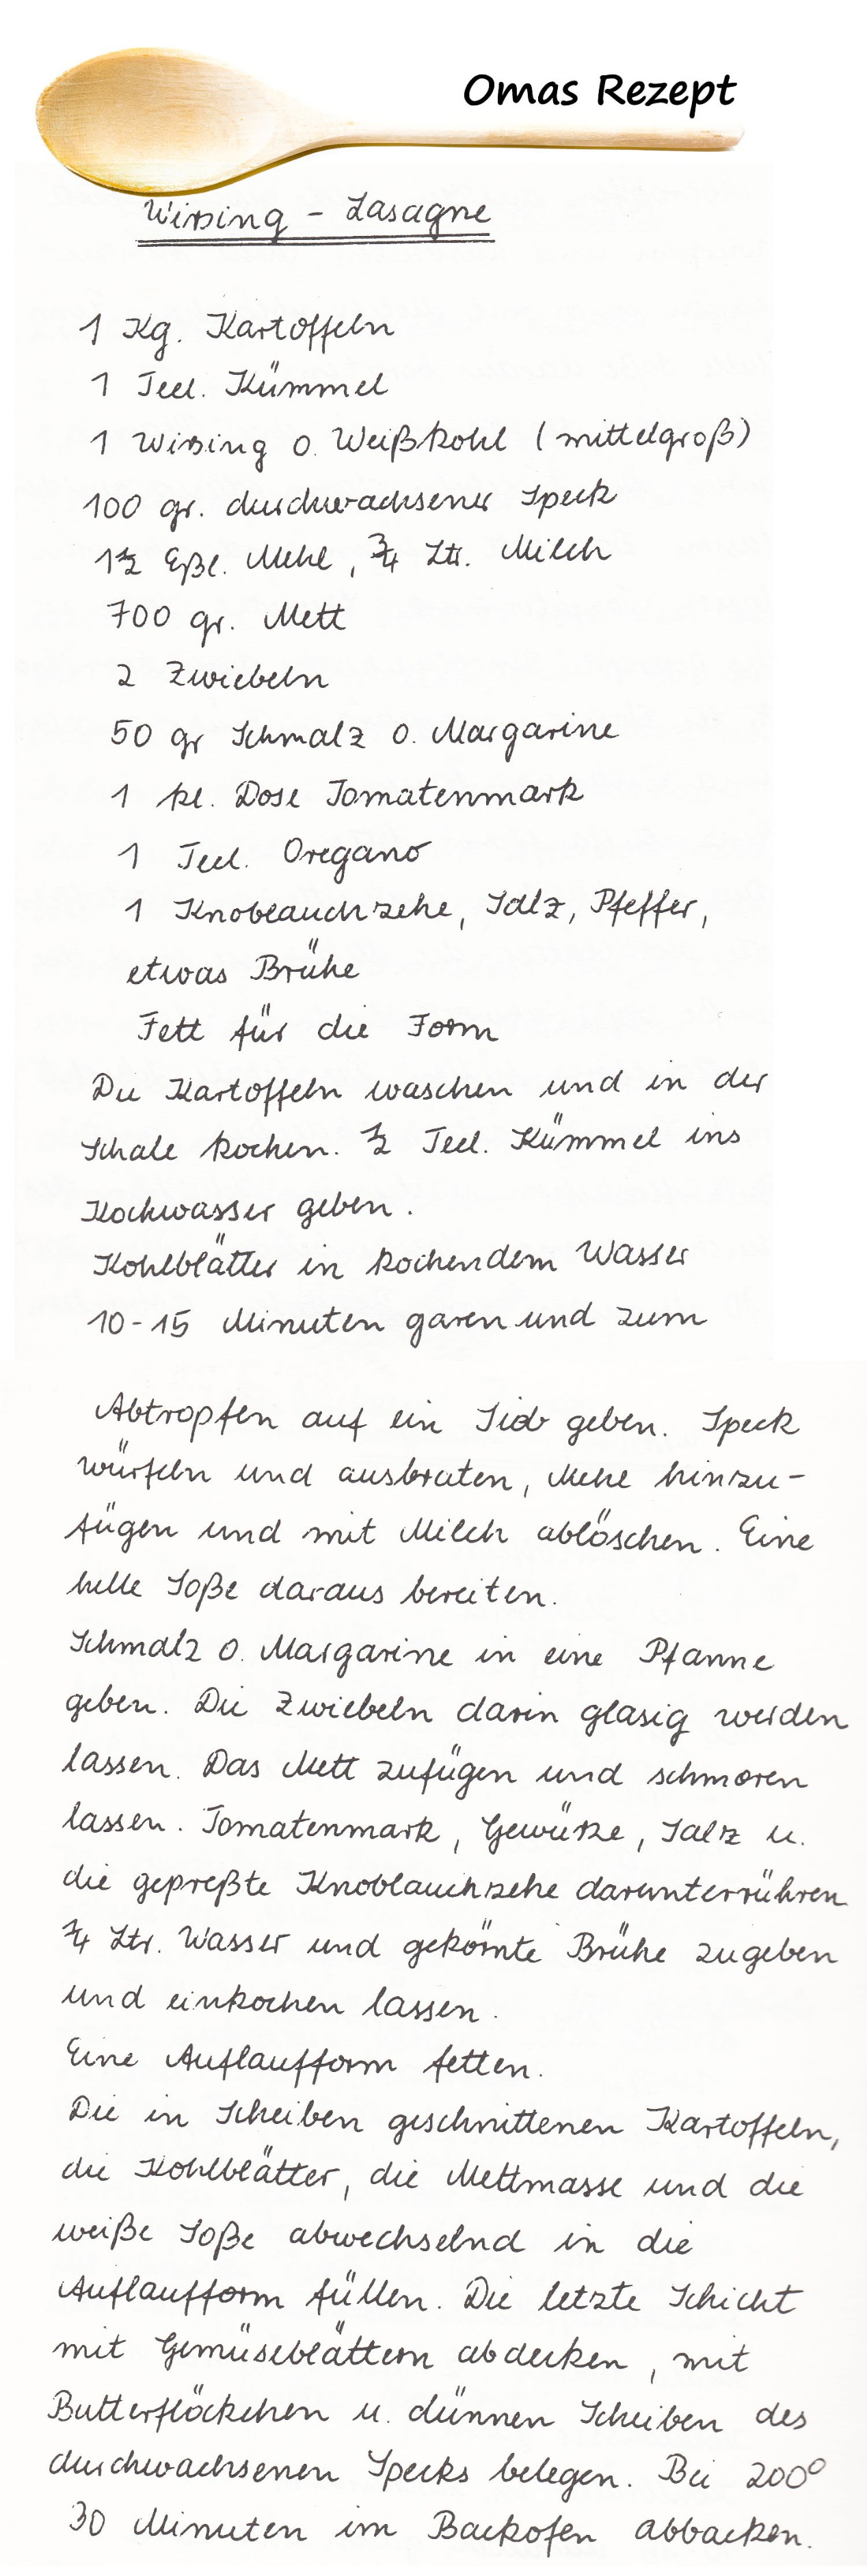 Omas Rezept
Wirsing - Lasagne
1 Kg. Kartoffeln
1 Teel. Kümmel
1 Wirsing o. Weißkohl (mittelgroß)
100 gr. durchwachsener Speck
1½ Eßl. Mehl, ¾ Ltr. Milch
700 gr. Mett
2 Zwiebeln
50 gr Schmalz o. Margarine
1 kl. Dose Tomatenmark
1 Teel. Oregano
1 Knoblauchzehe, Salz, Pfeffer,
etwas Brühe
Fett für die Form
Die Kartoffeln waschen und in der
Schale kochen. ½ Teel. Kümmel ins
Kochwasser geben.
Kohlblätter in kochendem Wasser
10-15 Minuten garen und zum
Abtropfen auf ein Sieb geben. Speck
würfeln und ausbraten, Mehl hinzu-
fügen und mit Milch ablöschen. Eine
helle Soße daraus bereiten.
Schmalz o. Margarine in eine Pfanne
geben. Die Zwiebeln darin glasig werden
lassen. Das Mett zufügen und schmoren
lassen. Tomatenmark, Gewürze, Salz u.
die gepreßte Knoblauchzehe darunterrühren
¼ Ltr. Wasser und gekörnte Brühe zugeben
und einkochen lassen.
Eine Auflaufform fetten.
Die in Scheiben geschnittenen Kartoffeln,
die Kohlblätter, die Mettmasse und die
weiße Soße abwechselnd in die
Auflaufform füllen. Die letzte Schicht
mit Gemüseblättern abdecken, mit
Butterflöckchen u. dünnen Scheiben des
durchwachsenen Specks belegen. Bei 200°
30 Minuten im Backofen abbacken.